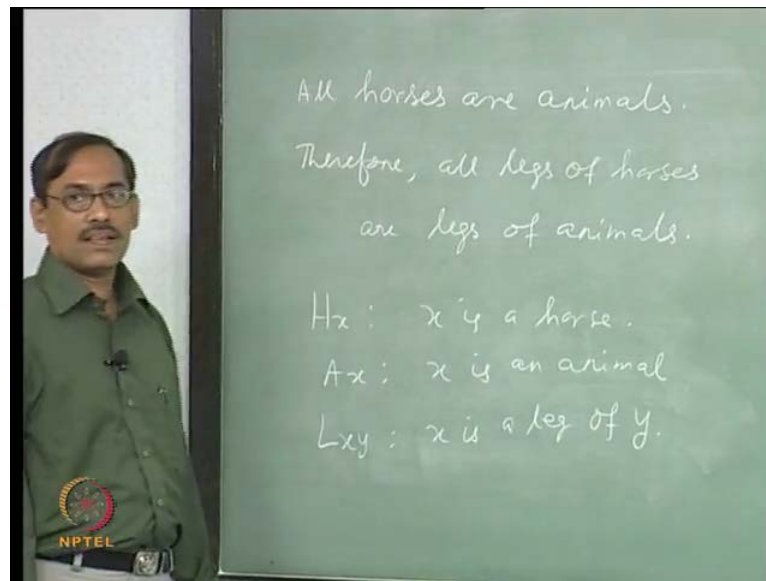 All horses are animals.
Therefore, all legs of horses
are legs of animals.
Hx : x is a horse.
Ax : x is an animal
Lxy : x is a leg of y.
NPTEL